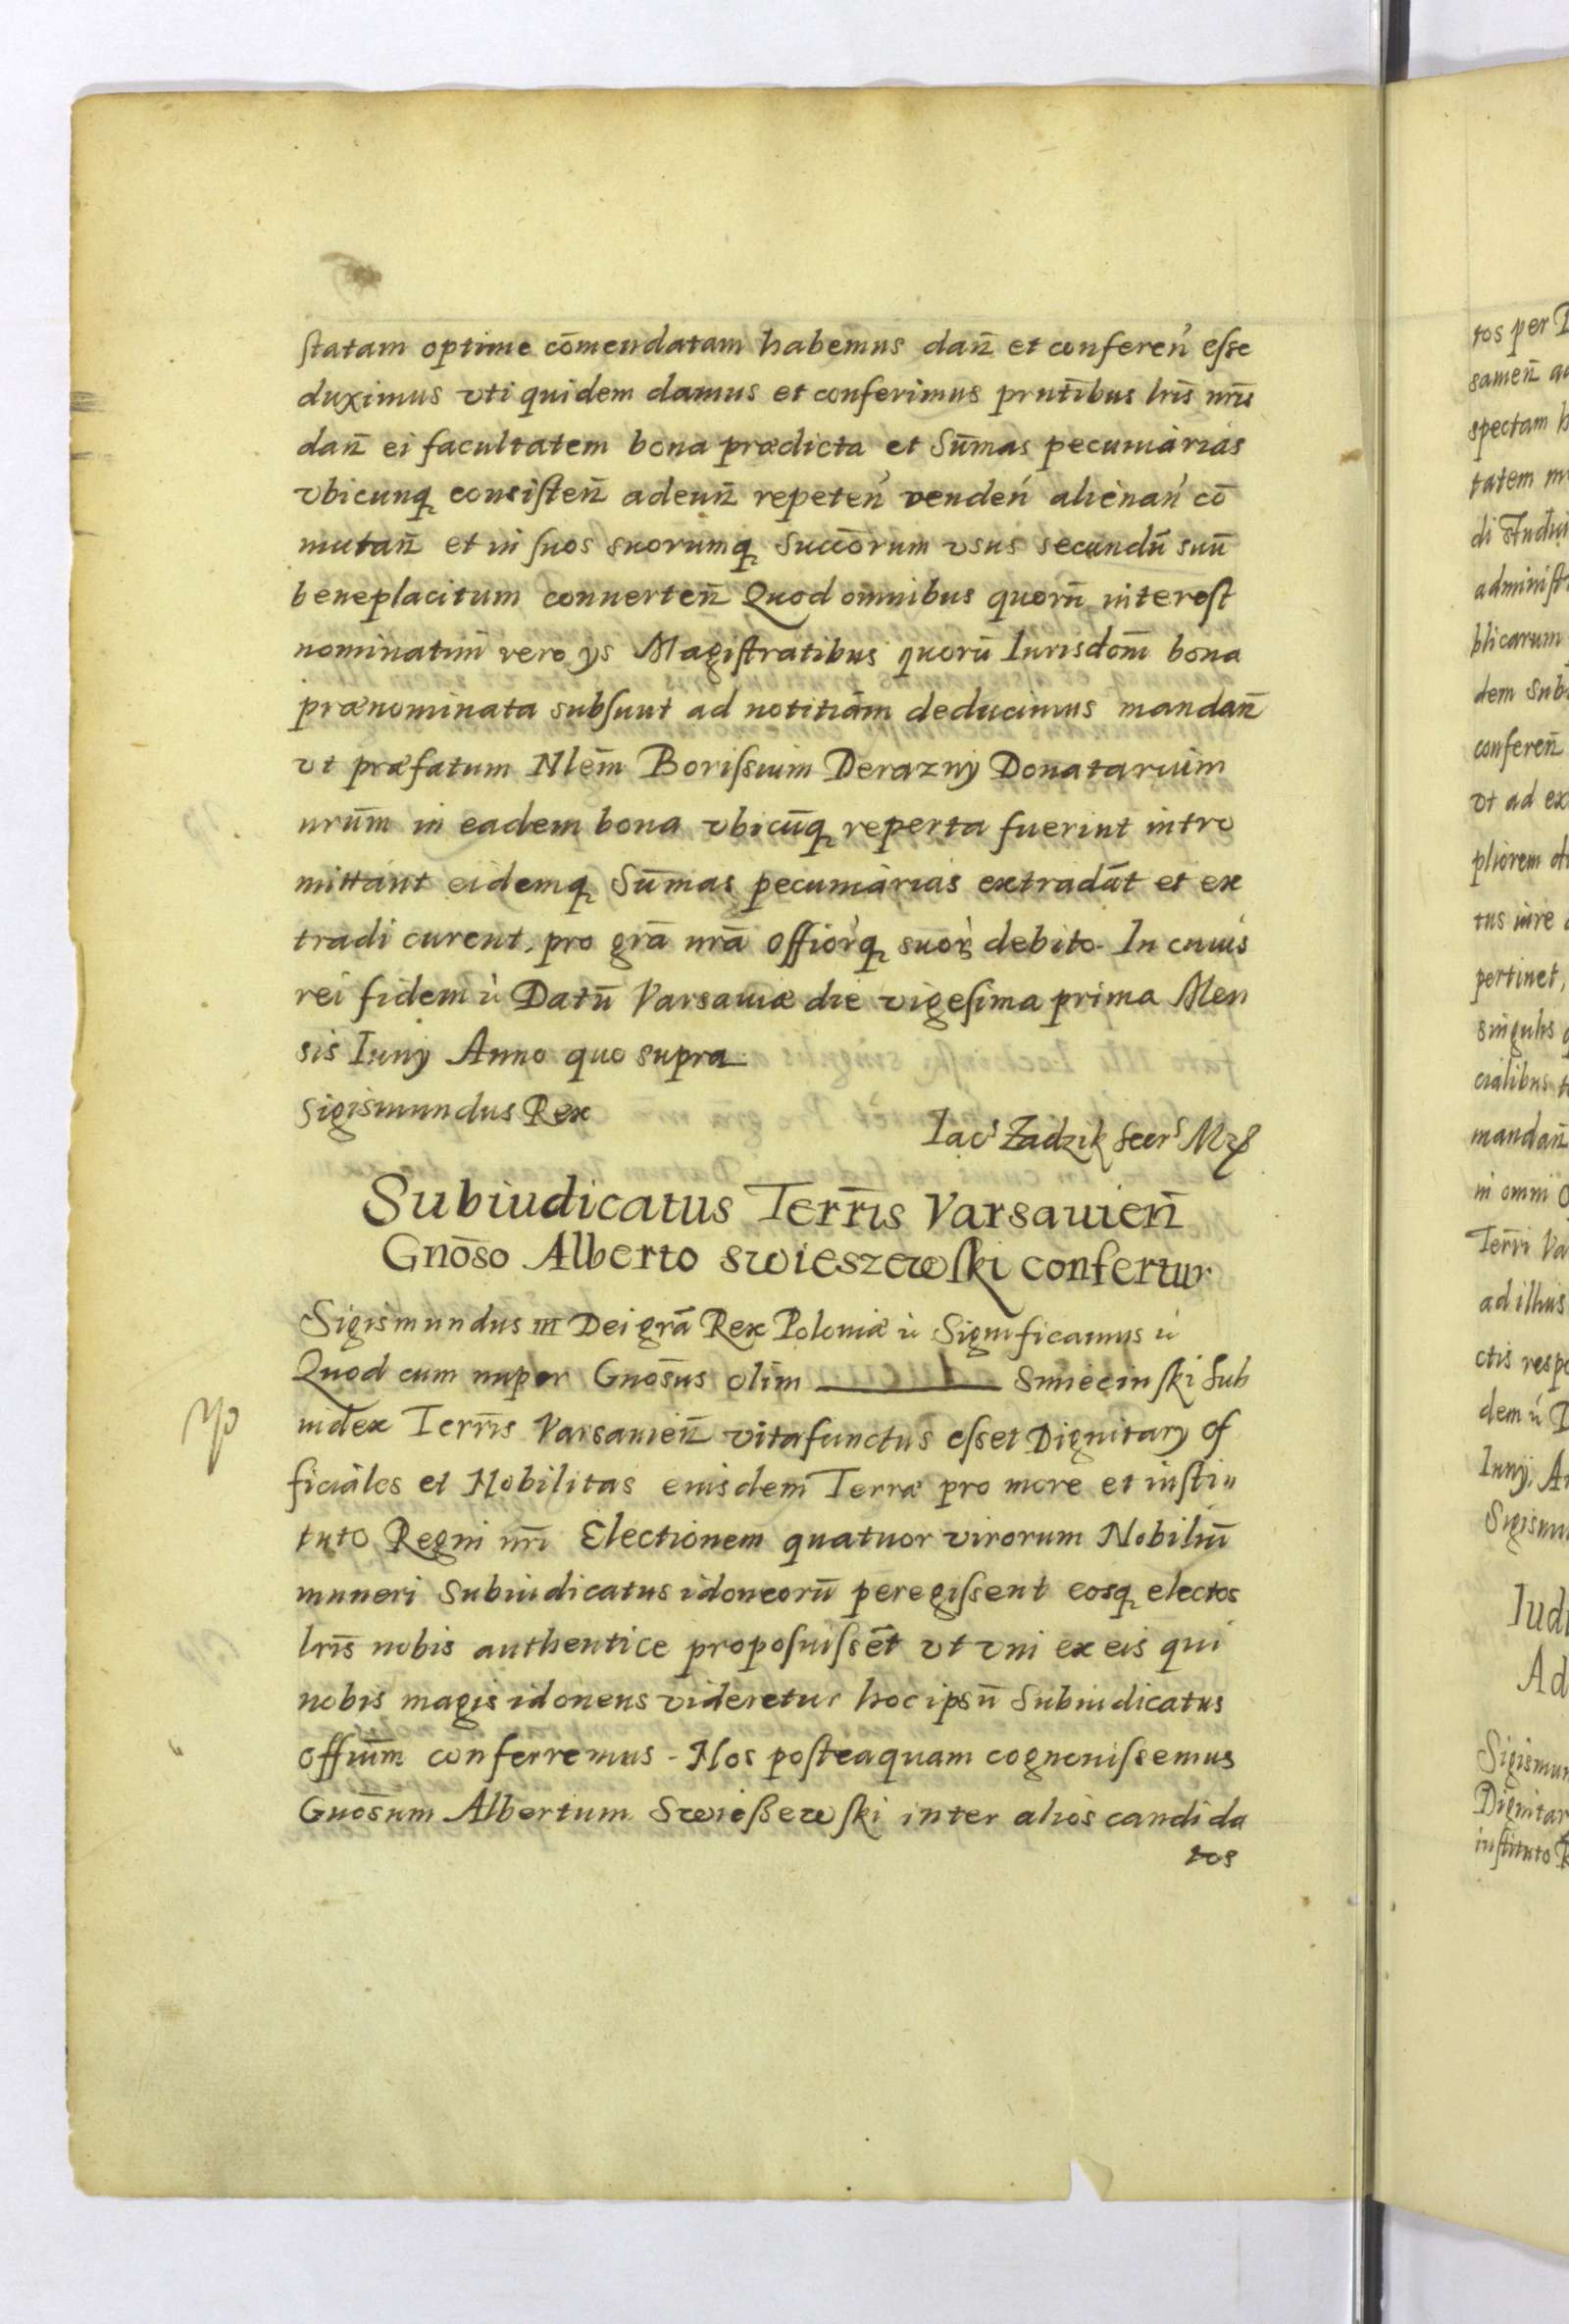 statam optime cōmendatam habemus dan̄ et conferen̄ esse
duximus vti quidem damus et conferimus prntibus lris nris
dan̄ ei facultatem bona prædicta et Sūmas pecuniarias
vbicunq consisten̄ adeun̄ repeten̄ venden̄ alienan̄ cō
mutan̄ et in suos suorumq Succorum vsus secundū suū
beneplacitum conuerten̄ Quod omnibus quorū interest
nominatim vero ijs Magistratibus quorū Iurisdom̄ bona
prænominata subsunt ad notitiam deducimus mandan̄
vt præfatum Nlem̄ Borissium Derazny Donatarium
nrūm in eadem bona vbicūq reperta fuerint intro
mittant eidemq Sūmas pecuniarias extradāt et ex
tradi curent, pro grā nrā Offiorq suor debito. In cuius
rei fidem ù Datū Varsauiæ die vigesima prima Men
sis Iunij Anno quo supra
Sigismundus Rex
Iac⁵ Zadzik Secr⁵ M
Subiudicatus Terris Varsauien̄
Gnōso Alberto Swieszewski confertur
Sigismundus III Dei grā Rex Poloniæ ù Significamus ù
Quod cum nuper Gnosus olim ——— Smiecinski Sub
iudex Terris Varsauien̄ vita functus esset Dignitarij of
ficiales et Nobilitas eiusdem Terræ pro more et insti„
tuto Regni nri Electionem quatuor virorum Nobiliū
muneri Subiudicatus idoneorū peregissent eosq electos
lris nobis authentice proposuissēt vt vni ex eis qui
nobis magis idoneus videretur hoc ipsū Subiudicatus
Offium conferremus. Nos posteaquam cognouissemus
Gnosum Albertum Swießewski inter alios candida
tos
tos per
samen̄
spectam
tatem
di Studui
administ
blicarum
dem Sub
conferen̄
vt ad ex
pliorem
tus iure
pertinet,
singulis
cialibus
mandan̄
in omni
Terri Va
ad illius
ctis resp
dem ù
Iunij. A
Sigismu
Iudi
Ad
Sigismun
Dignitar
instituto